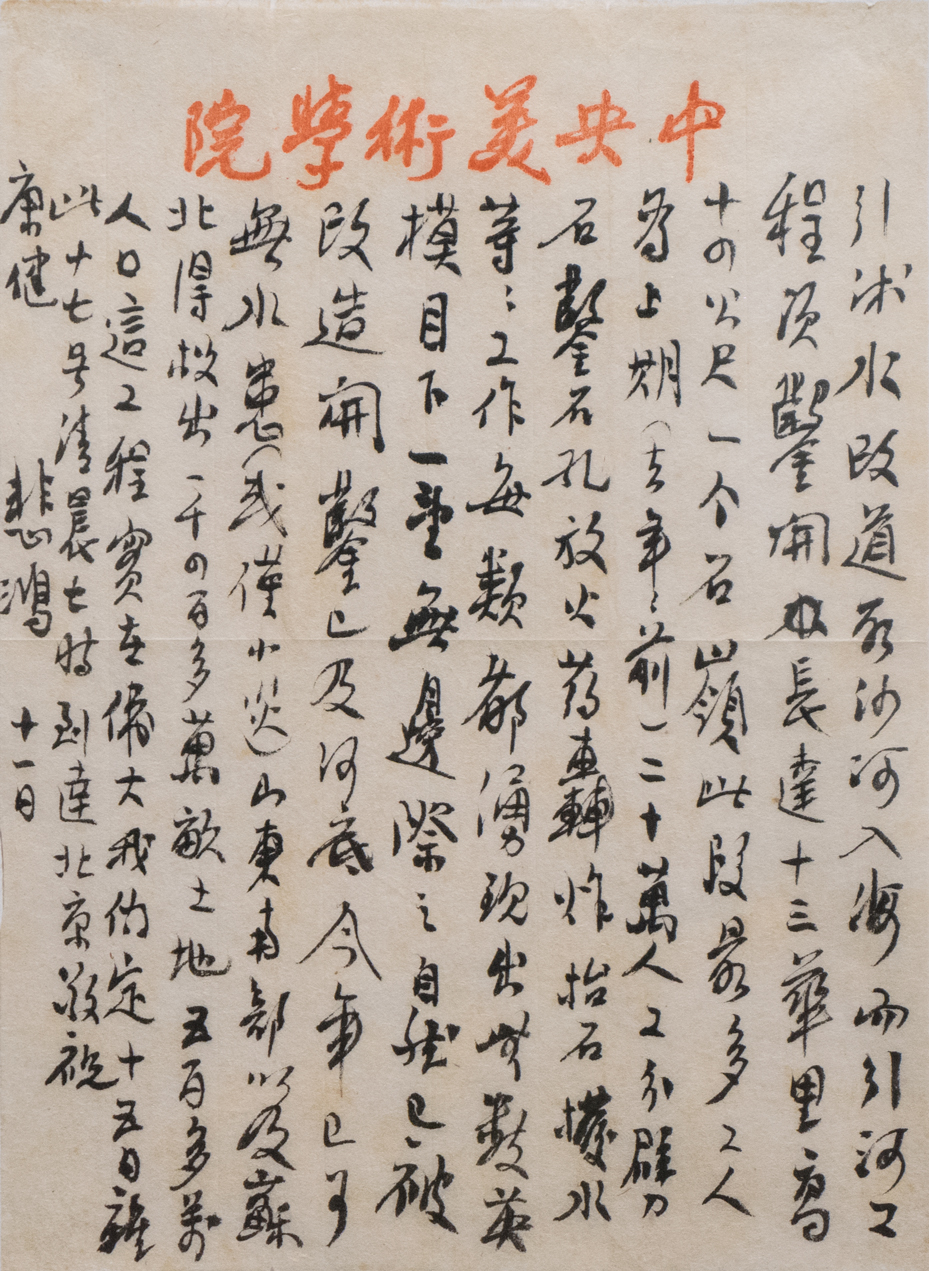 中央美術學院
引沭水改道取沙河入海而引河工
程須鑿開長達十三華里高
十四公尺一个石山嶺此段最多工人
為上期（去年年前）二十萬人工分劈
石鑿石孔放火藥轟炸抬石擋水
等等工作每類都湧現出無數英
模目下一望無邊際之自然已被
改造開鑿已及河底今年已可
無水患（或僅小災）山東南部以及蘇
北得救出一千四百多萬畝土地五百多萬
人口這工程實在偉大我約定十五日離
此十七号清晨七時到達北京敬祝
康健
悲鴻 十一日